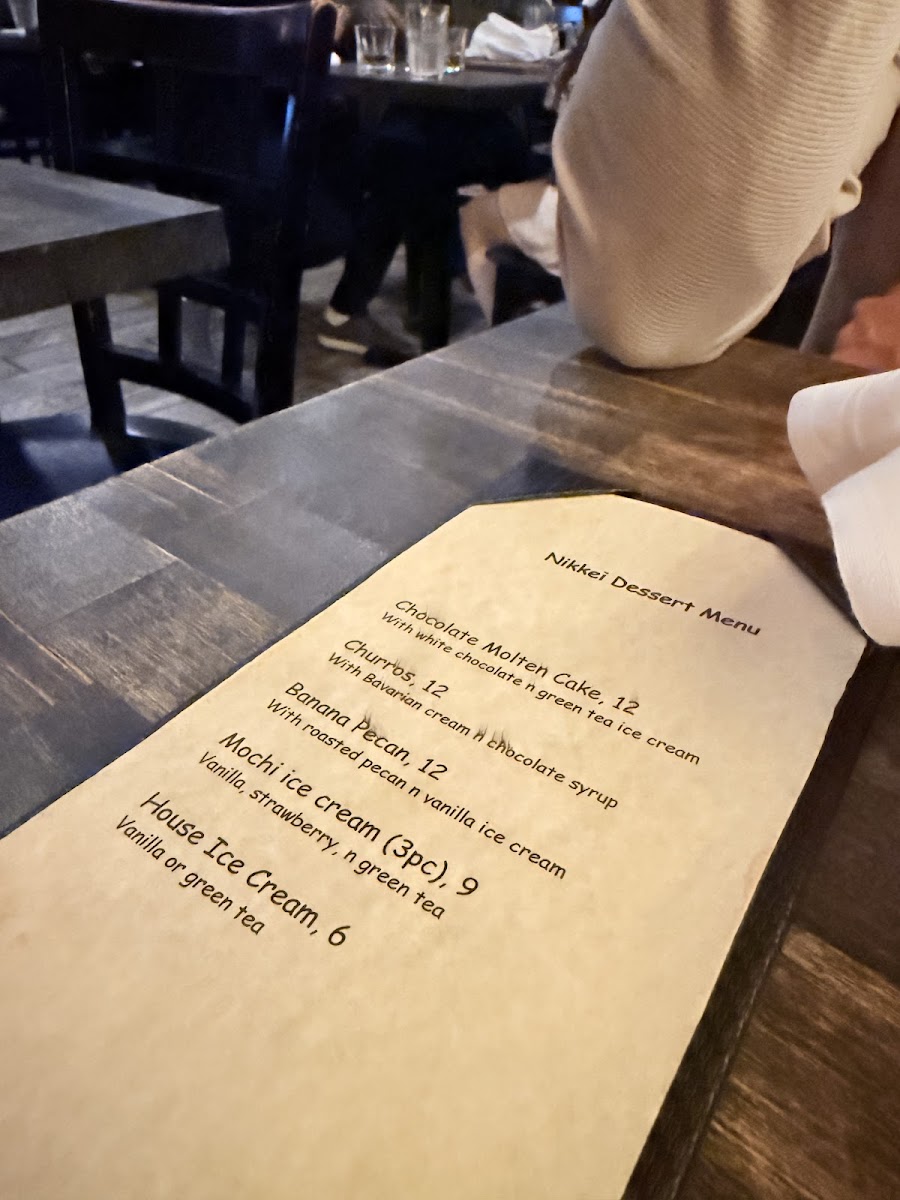 Nikkei Dessert Menu
Chocolate Molten Cake, 12
With white chocolate n green tea ice cream
Churros, 12
With Bavarian cream n chocolate syrup
Banana Pecan, 12
With roasted pecan n vanilla ice cream
Mochi ice cream (3pc), 9
Vanilla, strawberry, n green tea
House Ice Cream, 6
Vanilla or green tea